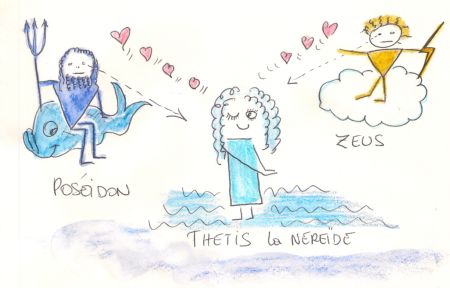 POSÉIDON
ZEUS
THETIS la NEREÏDE